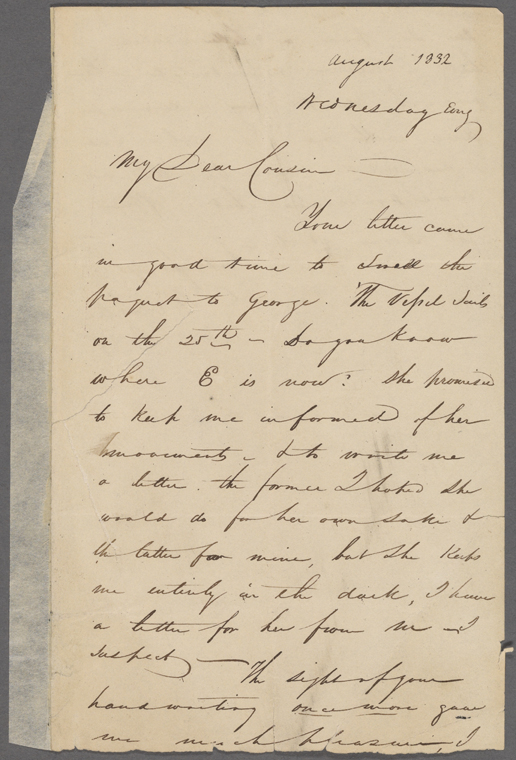 August 1832
Wednesday Evg
My Dear Cousin
Your letter came
in good time to swell the
paquet to George. The Vessel sails
on the 25th - Do you know
where E is now? She promised
to keep me informed of her
movements - & to write me
a letter. the former I hoped she
would do for her own sake &
the latter for mine, but she keeps
me entirely in the dark, I have
a letter for her from - I
suspect - The sight of your
handwriting once more gave
me much pleasure, I